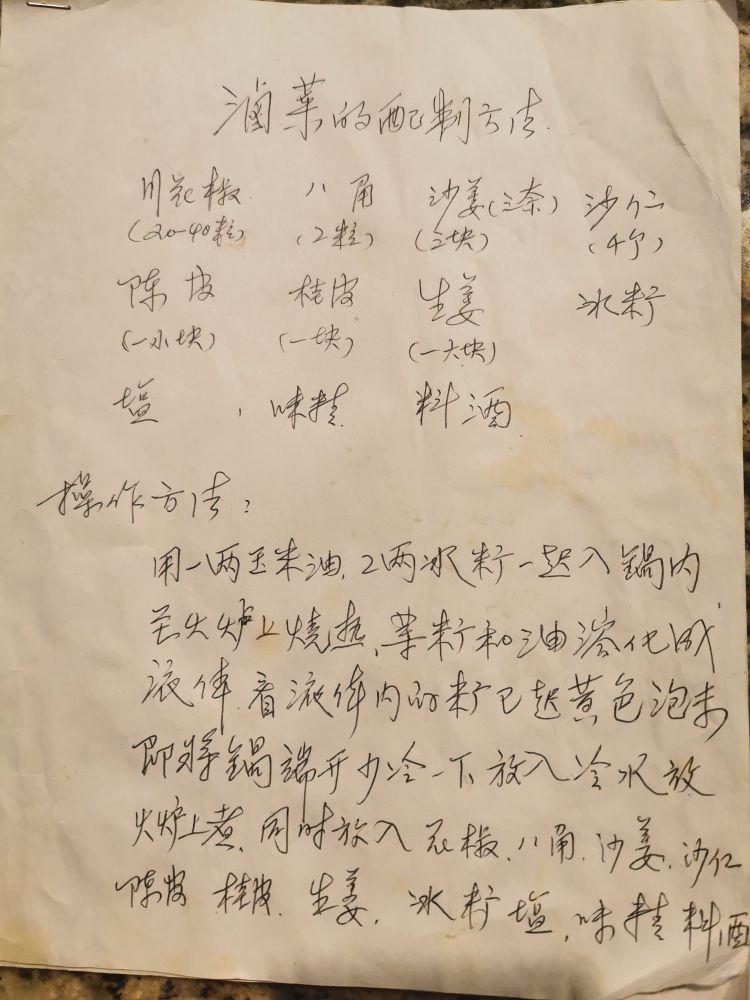 滷菜的配制方法.
川花椒 八角 沙姜(三奈) 沙仁
(20-40粒) (2粒) (三块) (4个)
陈皮 桂皮 生姜 冰籽
(一小块) (一块) (一大块)
塩, 味精 料酒
操作方法:
用一两玉米油, 2两冰籽一起入锅内
在火炉上烧热, 等籽和油溶化成
液体, 看液体内的籽已起黄色泡未
即将锅端开少冷一下放入冷水放
火炉上煮, 同时放入花椒, 八角, 沙姜, 沙仁
陈皮 桂皮. 生姜, 冰籽塩, 味精料酒